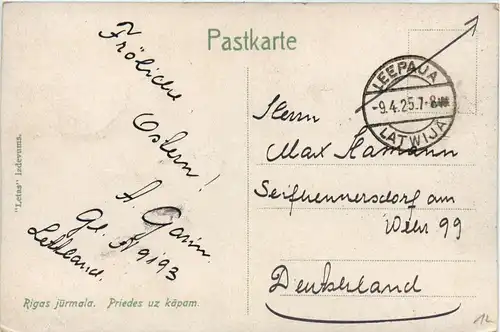 Pastkarte
Fröliche
Ostern!
A. Garin.
Gl. A 9193
Lettland.
"Letas" isdevums.
LEEPAJA
-9.4.25.7-8
LATWIJA
Herrn
Max Hamann
Seifhennersdorf am
Wehr 99
Deutschland
Rigas jūrmala. Priedes uz kāpam.